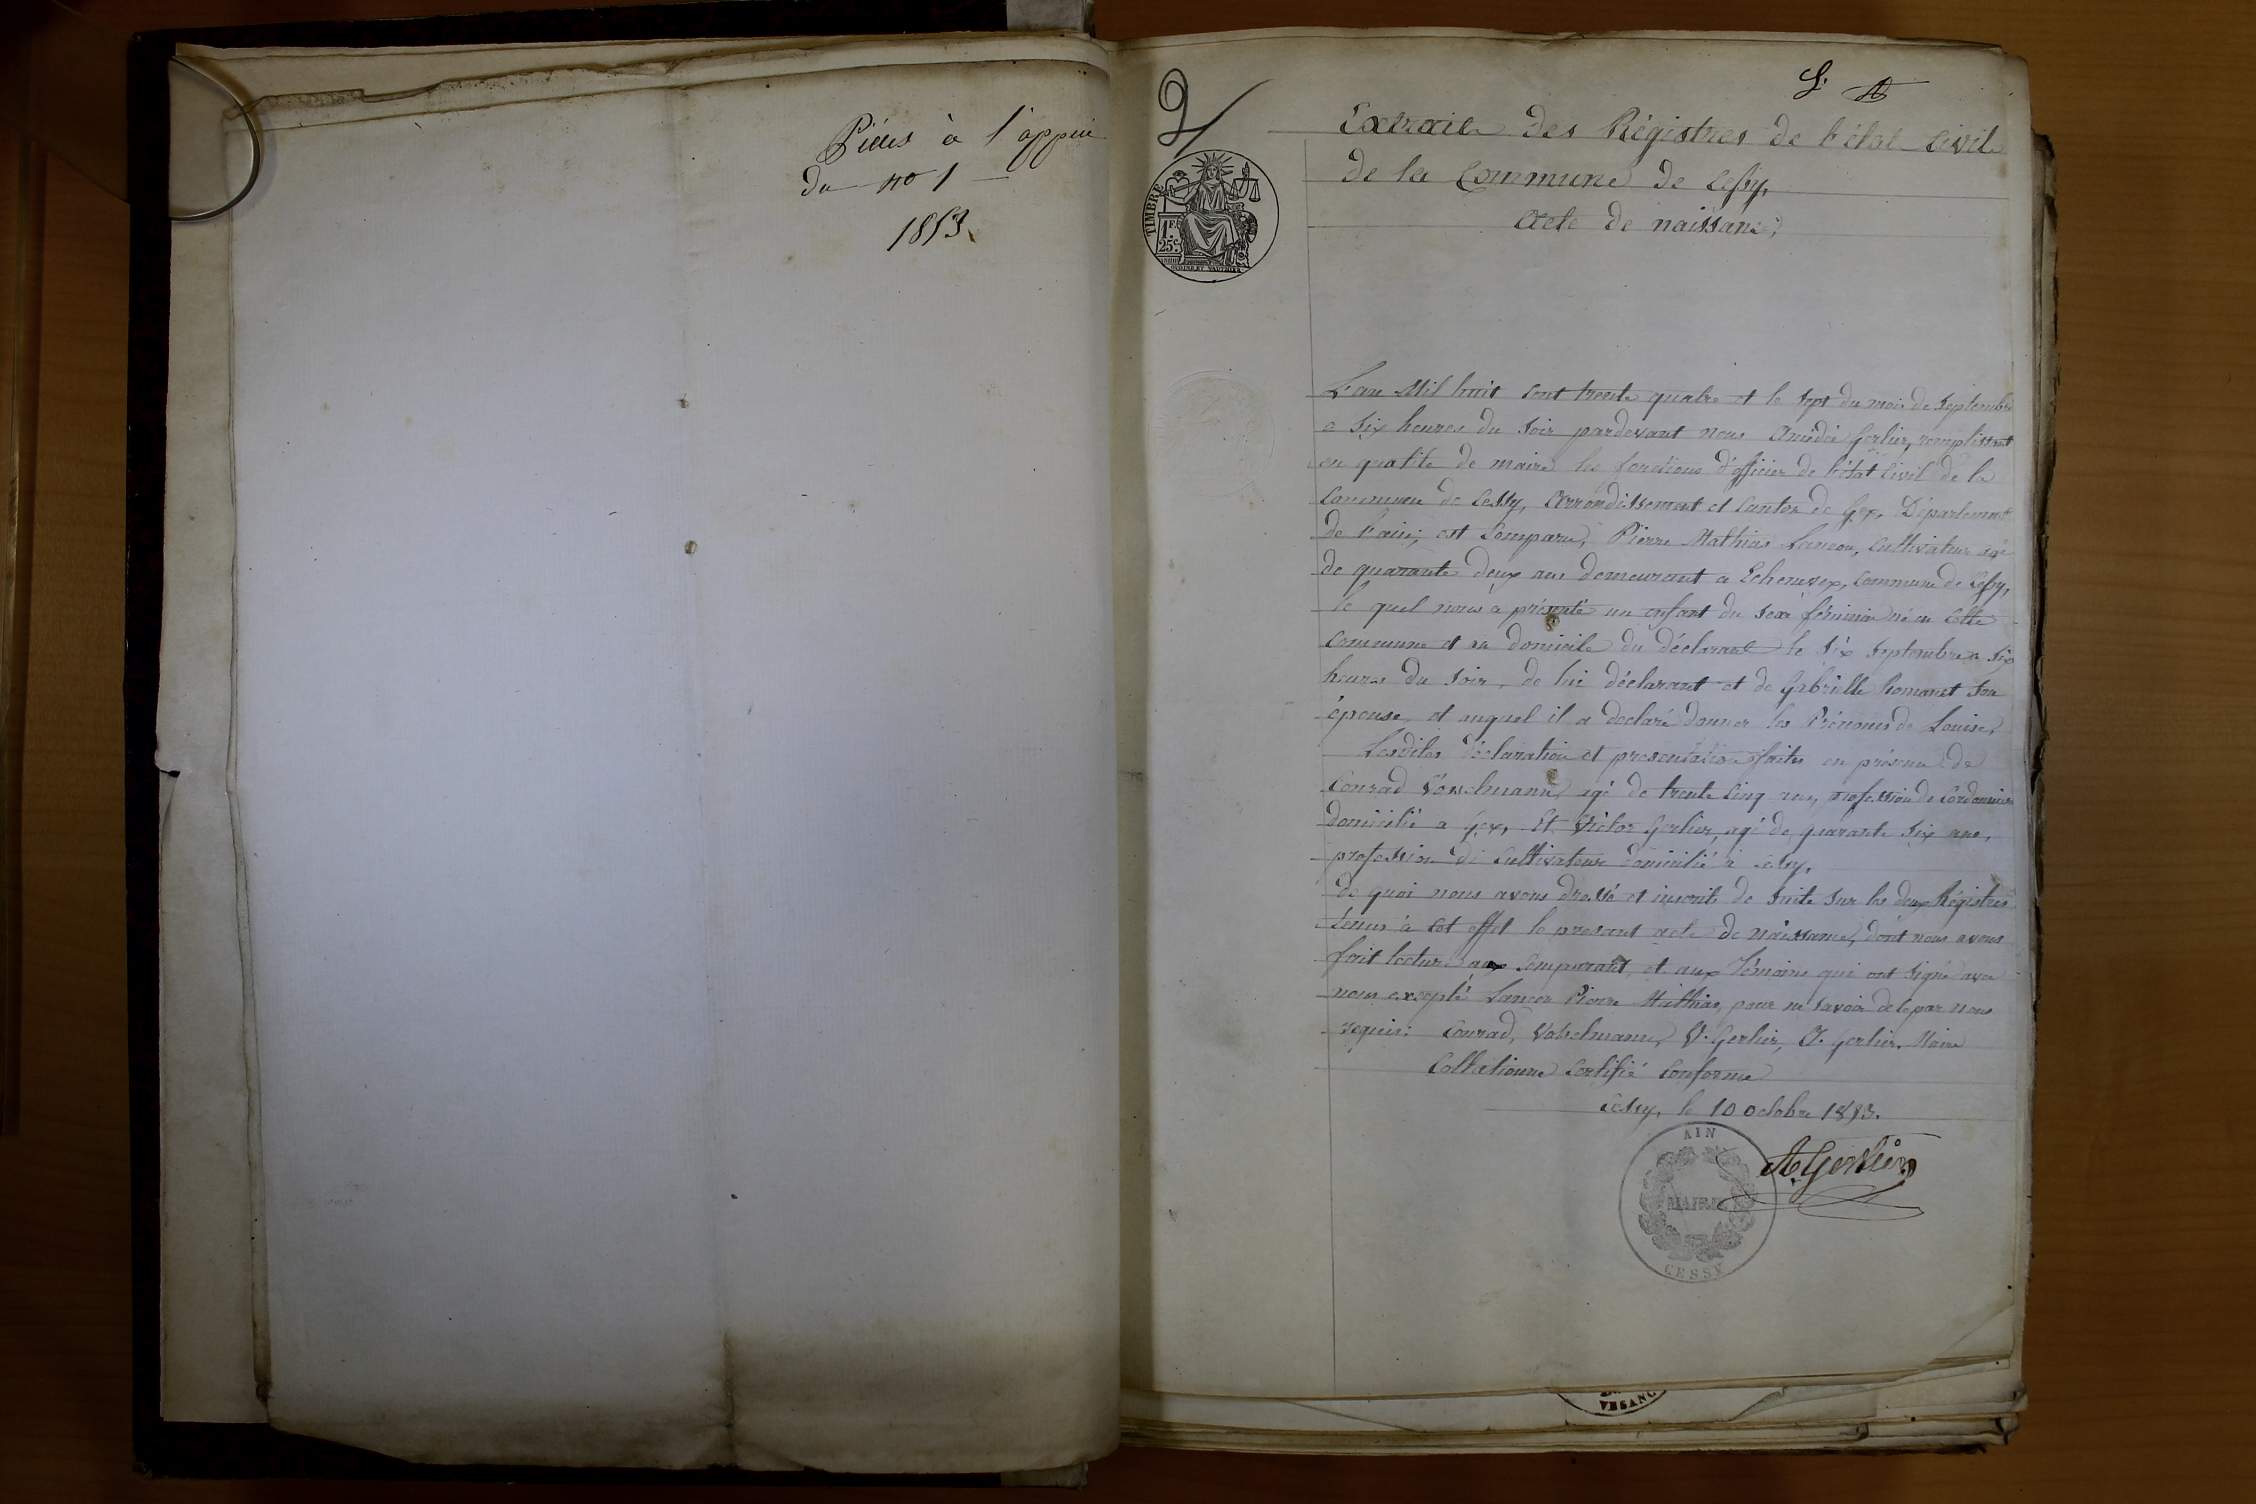 Pièces à l'appui
du no 1
1853.
2
S. A
TIMBRE
1 F.
25 c.
Extrait des Régistres de l'état civil
de la Commune de Cessy,
Acte de naissance,
L'an Mil huit cent trente quatre et le sept du mois de Septembre
a six heures du soir pardevant nous Amédée Gerlier, remplissant
en qualité de maire les fonctions d'officier de l'état civil de la
Commune de Cessy, Arrondissement et Canton de Gex, Département
de l'ain, est Comparu, Pierre Mathias Lancon, Cultivateur agé
de quarante deux ans demeurant a Echenevex, Commune de Cessy,
le quel nous a présenté un enfant du sexe féminin né en Cette
Commune et au domicile du déclarant le six Septembre a six
heures du soir, de lui déclarant et de Gabrielle homanet son
épouse, et auquel il a declaré donner les Prénoms de Louise,
Lesdites déclaration et presentation faites en présence de
Conrad Vosselmann, agé de trente cinq ans, profession de Cordonnier
domicilié a Gex, Et Victor Gerlier, agé de quarante six ans,
profession de Cultivateur domicilié a Cessy,
de quoi nous avons dressé et inscrit de suite sur les deux Régistres
tenus à cet effet le present acte de naissance, dont nous avons
fait lecture aux Comparant, et aux témoins qui ont signé avec
nous excepté Lancon Pierre Mathias, pour ne savoir de ce par nous
requis: Conrad, Vosselmann, V. Gerlier, A. Gerlier. Maire
Collationné Certifié Conforme
Cessy, le 10 octobre 1853.
A. Gerlier
AIN
MAIRIE
CESSY
VESANC